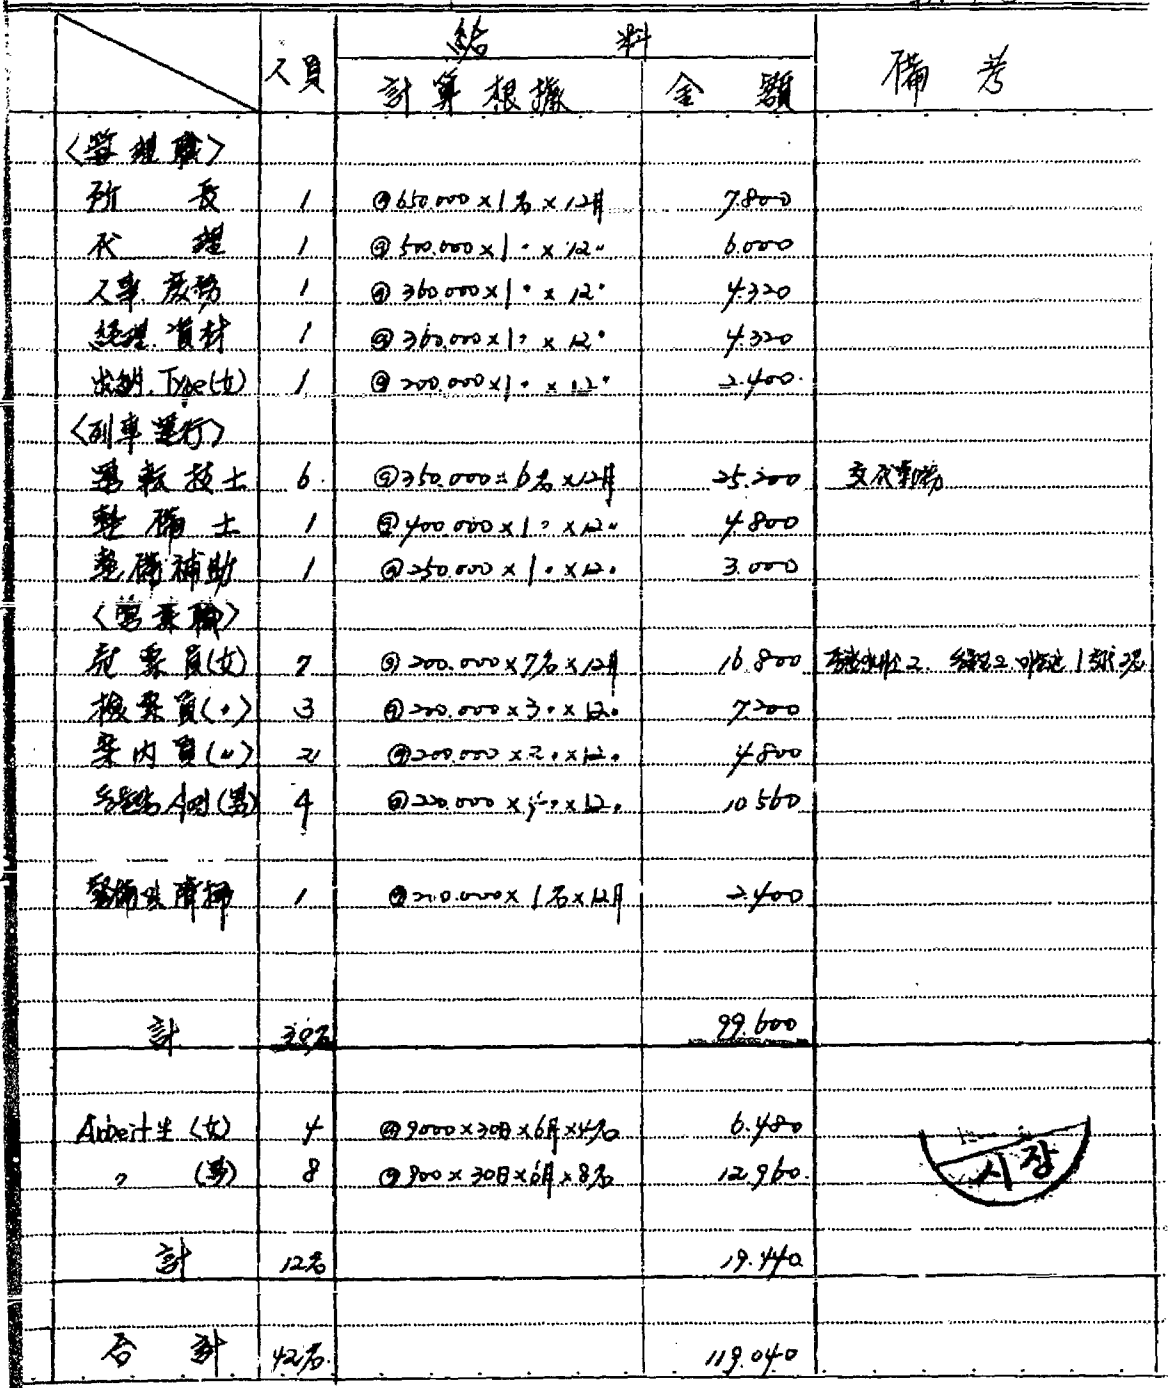 給 料
人員 計算根據 金 額 備 考
<管理職>
所 長 1 @650.000×1名×12月 7.800
代 理 1 @500.000×1〃×12〃 6.000
人事.庶務 1 @360.000×1〃×12〃 4.320
経理.資材 1 @360.000×1〃×12〃 4.320
出納.Type(女) 1 @200.000×1〃×12〃 2.400
<列車運行>
運転技士 6 @350.000×6名×12月 25.200 交代勤務
整備士 1 @400.000×1〃×12〃 4.800
整備補助 1 @250.000×1〃×12〃 3.000
<営業職>
売票員(女) 7 @200.000×7名×12月 16.800
検票員(〃) 3 @200.000×3〃×12〃 7.200
案内員(〃) 2 @200.000×2〃×12〃 4.800
(男) 4 @220.000×4〃×12〃 10.560
清掃 1 @200.000×1名×12月 2.400
計 30名 99.600
Arbeit生(女) 4 @9000×30日×6月×4名 6.480
〃 (男) 8 @900×30日×6月×8名 12.960
시장
計 12名 19.440
合 計 42名 119.040